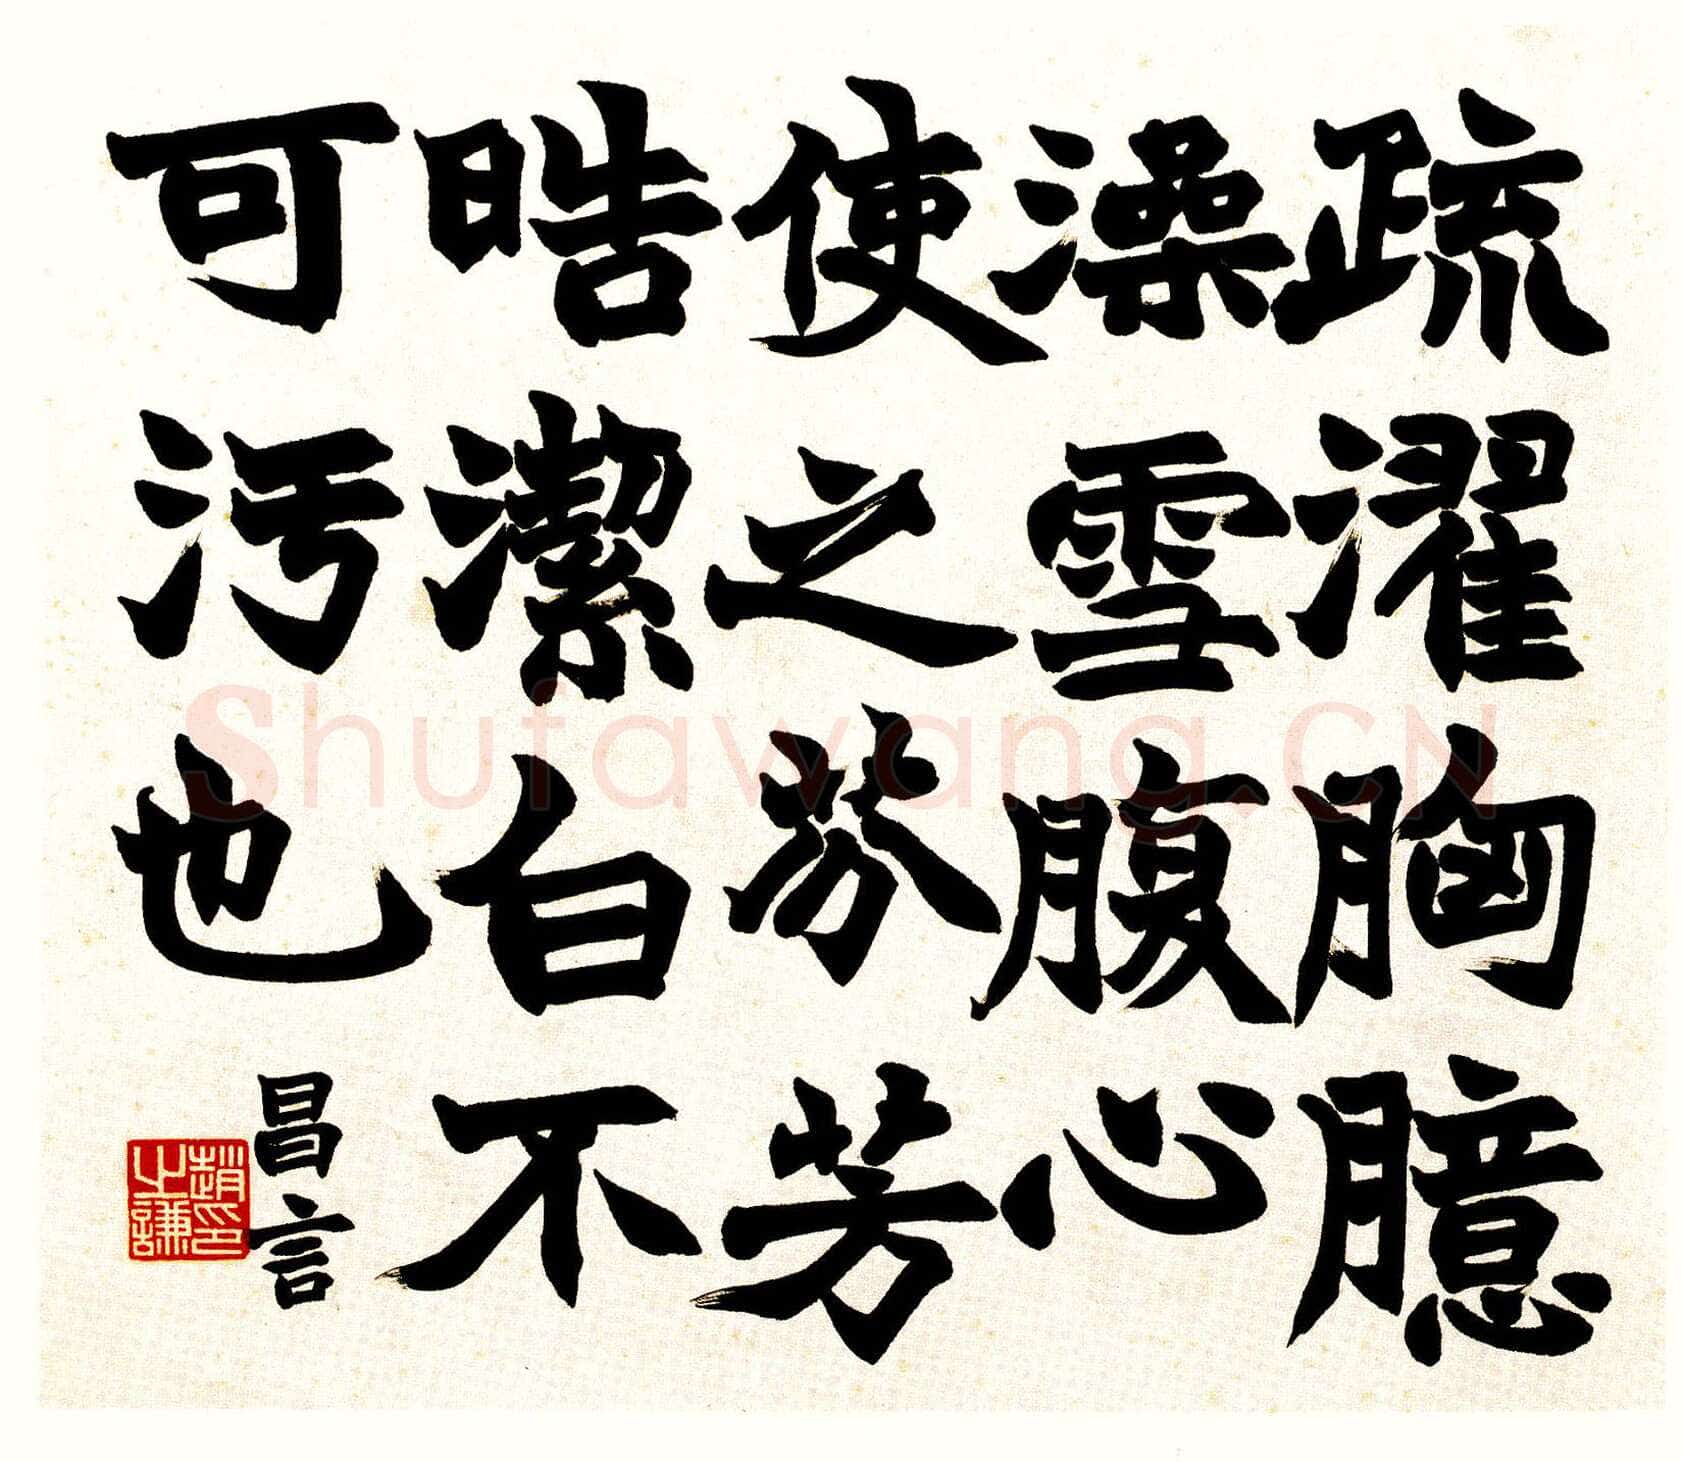 疏濯胸臆
澡雪腹心
使之芬芳
晧潔白不
可污也
昌言
趙之謙印
Shufawang.CN